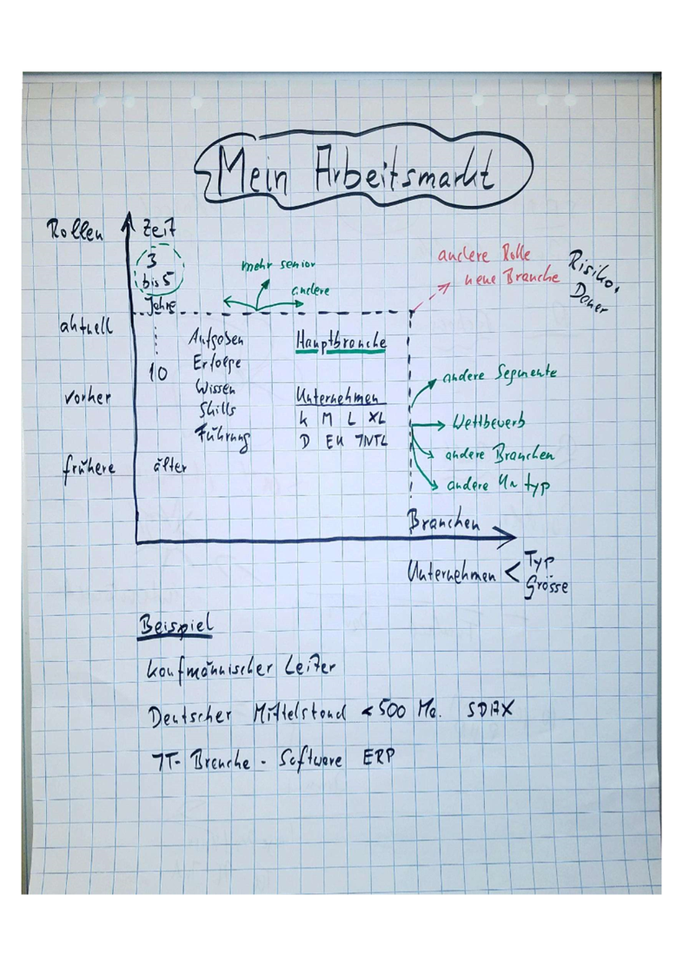 Mein Arbeitsmarkt
Rollen
Zeit
3
bis 5
Jahre
10
älter
aktuell
vorher
frühere
mehr senior
andere
andere Rolle
neue Branche
Risiko,
Dauer
Aufgaben
Erfolge
Wissen
Skills
Führung
Hauptbranche
Unternehmen
K M L XL
D EU INTL
andere Segmente
Wettbewerb
andere Branchen
andere Un typ
Branchen
Unternehmen < Typ
Grösse
Beispiel
kaufmännischer Leiter
Deutscher Mittelstand < 500 Ma. SDAX
IT-Branche - Software ERP